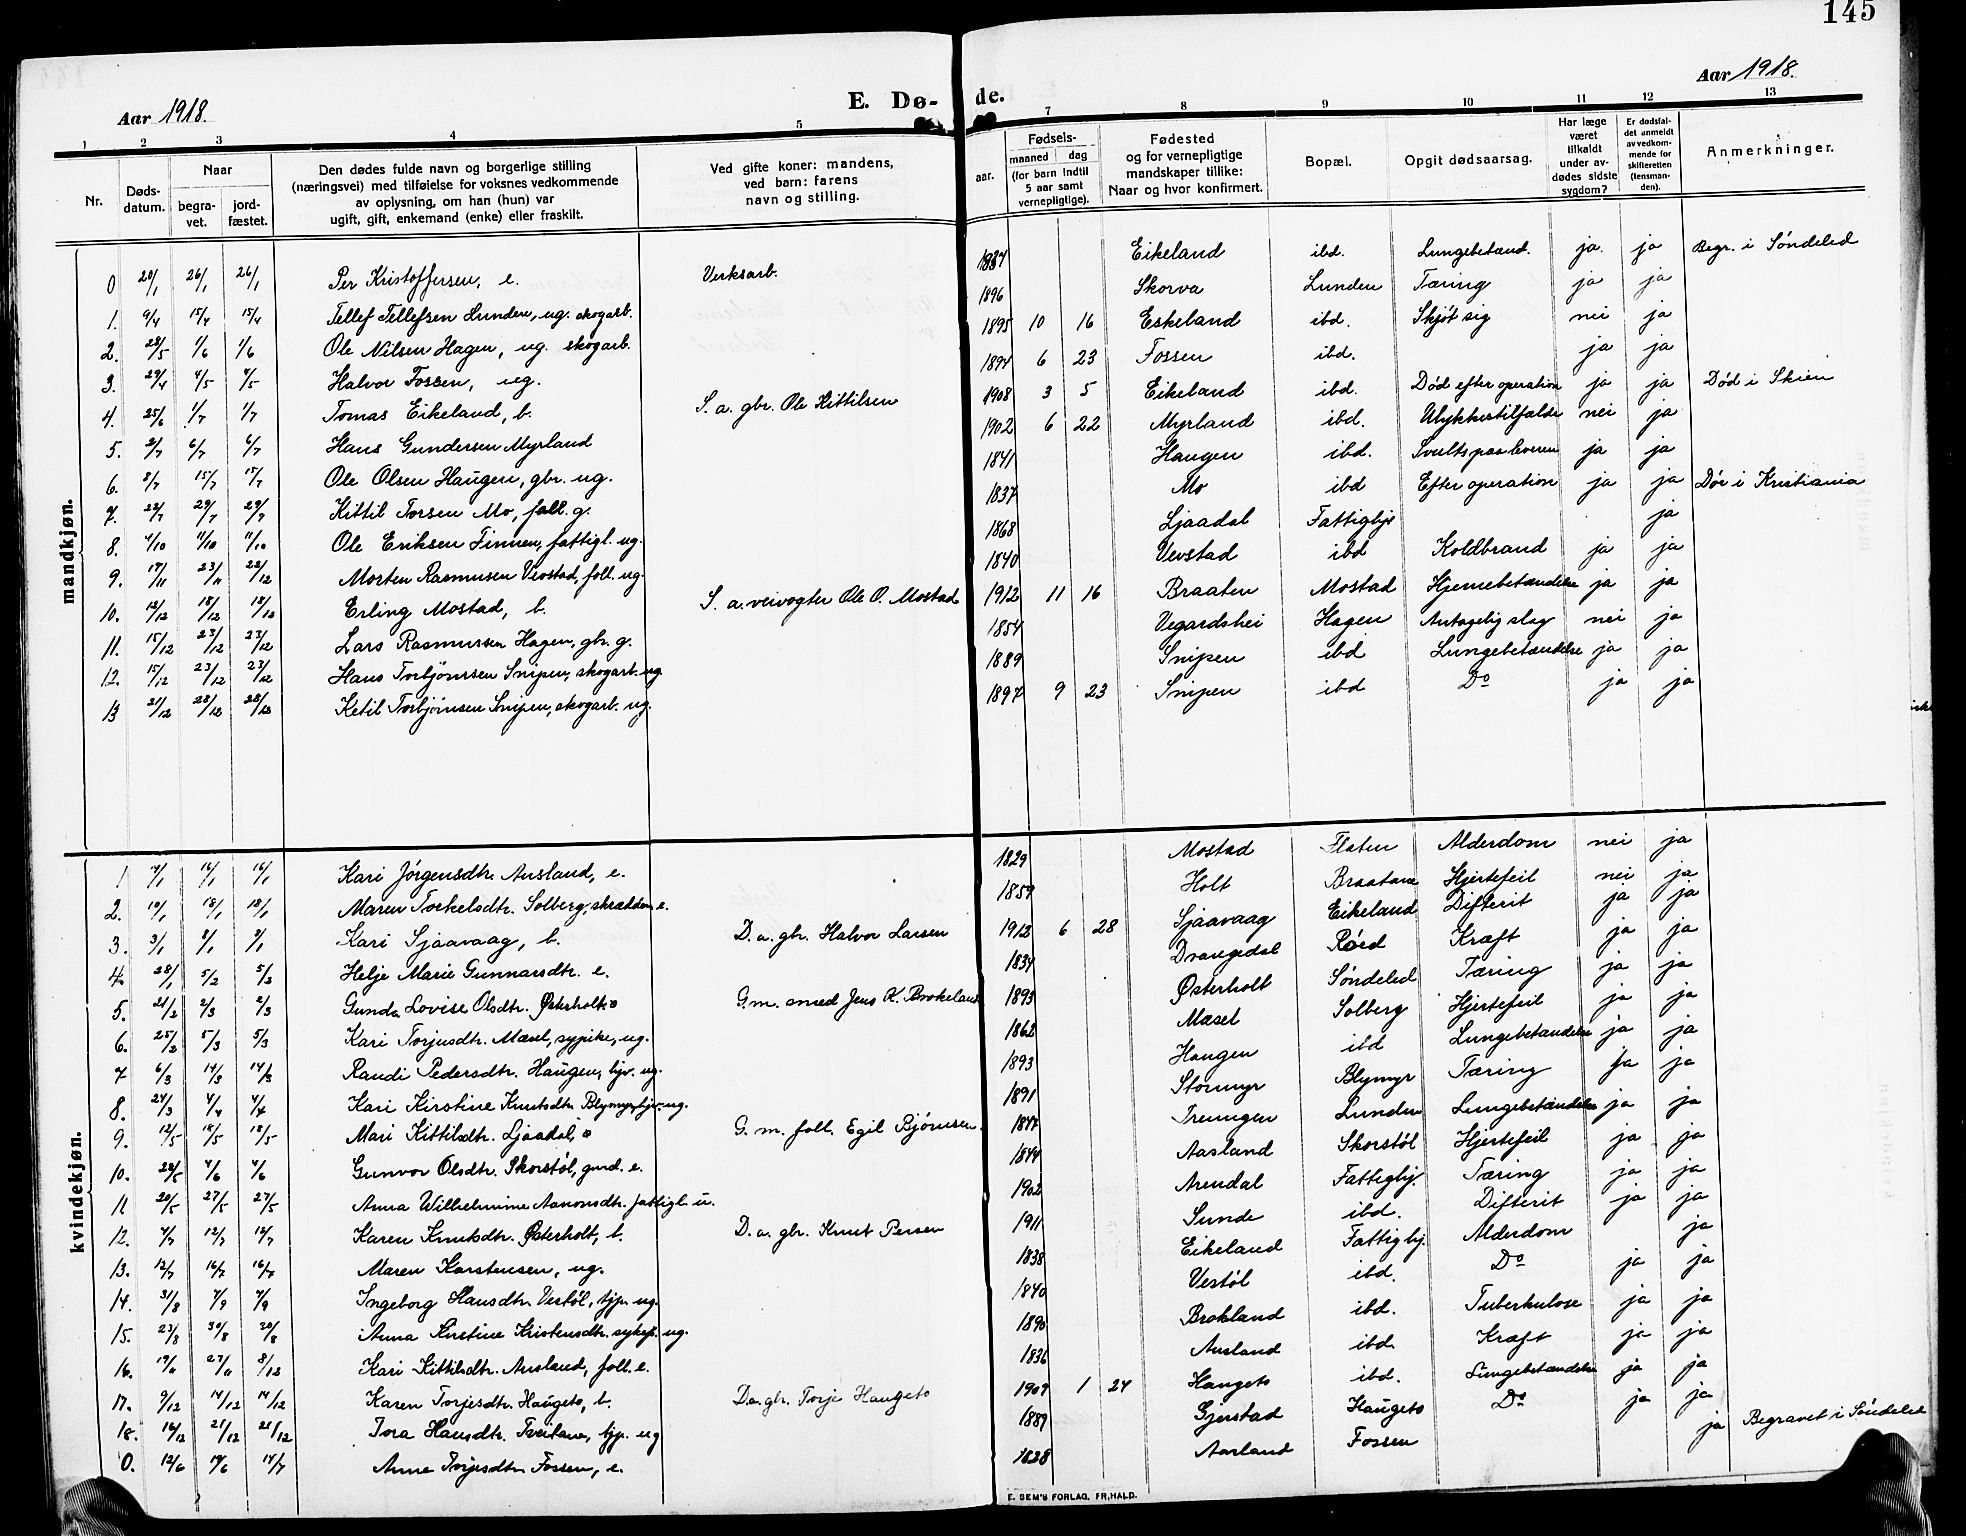 145
Aar 1918.
E. Dø- de.
Aar 1918.
1 2 3 4 5 7 8 9 10 11 12 13
Nr.
Døds-datum.
Naar
begra-vet.
jord-fæstet.
Den dødes fulde navn og borgerlige stilling
(næringsvei) med tilføielse for voksnes vedkommende
av oplysning, om han (hun) var
ugift, gift, enkemand (enke) eller fraskilt.
Ved gifte koner: mandens,
ved barn: farens
navn og stilling.
Fødsels-
aar.
maaned dag
(for barn indtil
5 aar samt
vernepligtige).
Fødested
og for vernepligtige
mandskaper tillike:
Naar og hvor konfirmert.
Bopæl.
Opgit dødsaarsag.
Har læge
været
tilkaldt
under av-
dødes sidste
sygdom?
Er dødsfal-
det anmeldt
av vedkom-
mende for
skifteretten
(lensman-
den).
Anmerkninger.
mandkjøn.
0 20/1 26/1 26/1 Per Kristoffersen, e. Verksarb. 1837 Eikeland ibd. Lungebetænd. ja. ja Begr. i Søndeled
1. 9/4 15/4 15/4 Tellef Tellefsen Lunden, ug. skogarb. 1896 Skorva Lunden Tæring ja ja
2. 28/5 1/6 1/6 Ole Nilsen Hagen, ug. skogarb. 1895 10 16 Eskeland ibd. Skjøt sig nei ja
3. 29/4 4/5 4/5 Halvor Fossen, ug. 1894 6 23 Fossen ibd. ja ja
4. 25/6 1/7 1/7 Tomas Eikeland, b. S. a. gbr. Ole Kittilsen 1908 3 5 Eikeland ibd. Død efter operation ja ja Død i Skien
5. 2/7 6/7 6/7 Hans Gundersen Myrland 1902 6 22 Myrland ibd. Ulykkestilfælde nei ja
6. 8/7 15/7 15/7 Ole Olsen Haugen, gbr. ug. 1841 Haugen ibd. Svulst paa leveren ja ja
7. 22/7 29/7 29/7 Kittil Torsen Mo, foll. g. 1837 Mo ibd Efter operation ja ja Dør i Kristiania
8. 4/10 11/10 11/10 Ole Eriksen Finnen, fattigl. ug. 1868 Ljaadal Fattigbj. ja
9. 17/11 23/11 22/12 Morten Rasmusen Vevstad, foll. ug. 1840 Vevstad ibd Koldbrand ja ja
10. 12/12 18/12 18/12 Erling Mostad, b. S. a. veivogter Ole O. Mostad 1912 11 16 Braaten Mostad Hjernebetændelse ja ja
11. 15/12 23/12 23/12 Lars Rasmussen Hagen, gbr. g. 1854 Vegardshei Hagen Antagelig slag nei ja
12. 15/12 23/12 23/12 Hans Torbjørnsen Snipen, skogarb. ug. 1889 Snipen ibd Lungebetændelse ja ja
13 21/12 28/12 28/12 Ketil Torbjørnsen Snipen, skogarb. ug. 1897 9 23 Snipen ibd Do ja ja
kvindekjøn.
1 7/1 16/1 16/1 Kari Jørgensdtr. Ausland, e. 1829 Mostad Flaten Alderdom nei ja
2. 10/1 18/1 18/1 Maren Torkelsdtr. Solberg, skrædden. e. 1857 Holt Braatane Hjertefeil nei ja
3. 3/1 8/1 9/1 Kari Sjaavaag, b. D. a. gbr. Halvor Larsen 1912 6 28 Sjaavaag Eikeland Difterit ja ja
4. 28/1 5/2 5/2 Helje Marie Gunnarsdtr. e. 1834 Drangedal Røed Kræft ja ja
5. 21/2 2/3 2/3 Gunda Lovise Olsdtr. Østerholt G. m. smed Jens K. Brokeland 1893 Østerholt Søndeled Tæring ja ja
6. 25/2 5/3 5/3 Kari Torjusdtr. Mæsel, sypike, ug. 1862 Mæsel Solberg Hjertefeil ja ja
7 6/3 14/3 14/3 Randi Pedersdtr. Haugen, tjv. ug. 1893 Haugen ibd Lungebetændelse ja ja
8. 24/3 4/4 4/4 Kari Kirstine Knutsdtr. Blymyr, tjv. ug. 1891 Stormyr Blymyr Tæring ja ja
9. 12/5 18/5 18/5 Mari Kittilsdtr. Ljaadal, G. m. foll. Egil Bjørnsen. Treungen Lunden Lungebetændelse ja ja
10. 28/5 4/6 4/6 Gunvor Olsdtr. Skorstøl, gmd. e. 1844 Aasland Skorstøl Hjertefeil ja ja
11 20/5 27/5 27/5 Anna Wilhelmine Aanonsdtr. fattigl. u. 1902 Arendal Fattigbj. Tæring ja ja
12. 4/7 12/7 12/7 Karen Knutsdtr. Østerholt, b. D. a. gbr. Knut Persen 1911 Sunde ibd. Difterit ja ja
13. 12/7 16/7 16/7 Maren Karstensen, ug. 1838 Eikeland Fattigbj. Alderdom ja
14. 31/8 7/9 7/9 Ingeborg Hansdtr. Vestøl, tjp. ug. 1840 Vestøl ibd. Do ja ja
15. 23/8 30/8 30/8 Anna Kirstine Kristensdtr. sykepl. ug. 1890 Brokland ibd. Tuberkulose ja ja
16. 19/11 27/11 8/12 Kari Kittilsdtr. Ausland, foll. e. 1836 Ausland ibd Kræft ja ja
17. 9/12 14/12 14/12 Karen Torjesdtr. Haugeto, b. D. a. gbr. Torje Haugeto 1909 1 24 Haugeto ibd. Lungebetændelse ja ja
18. 16/12 21/12 21/12 Tora Hansdtr. Tveitane, tjp. ug 1889 Gjerstad Haugeto Do ja ja
0. 12/6 19/6 14/7 Anne Torjesdtr. Fossen, e. 1828 Aasland Fossen ja Begravet i Søndeled
E. SEM'S FORLAG, FR.HALD.